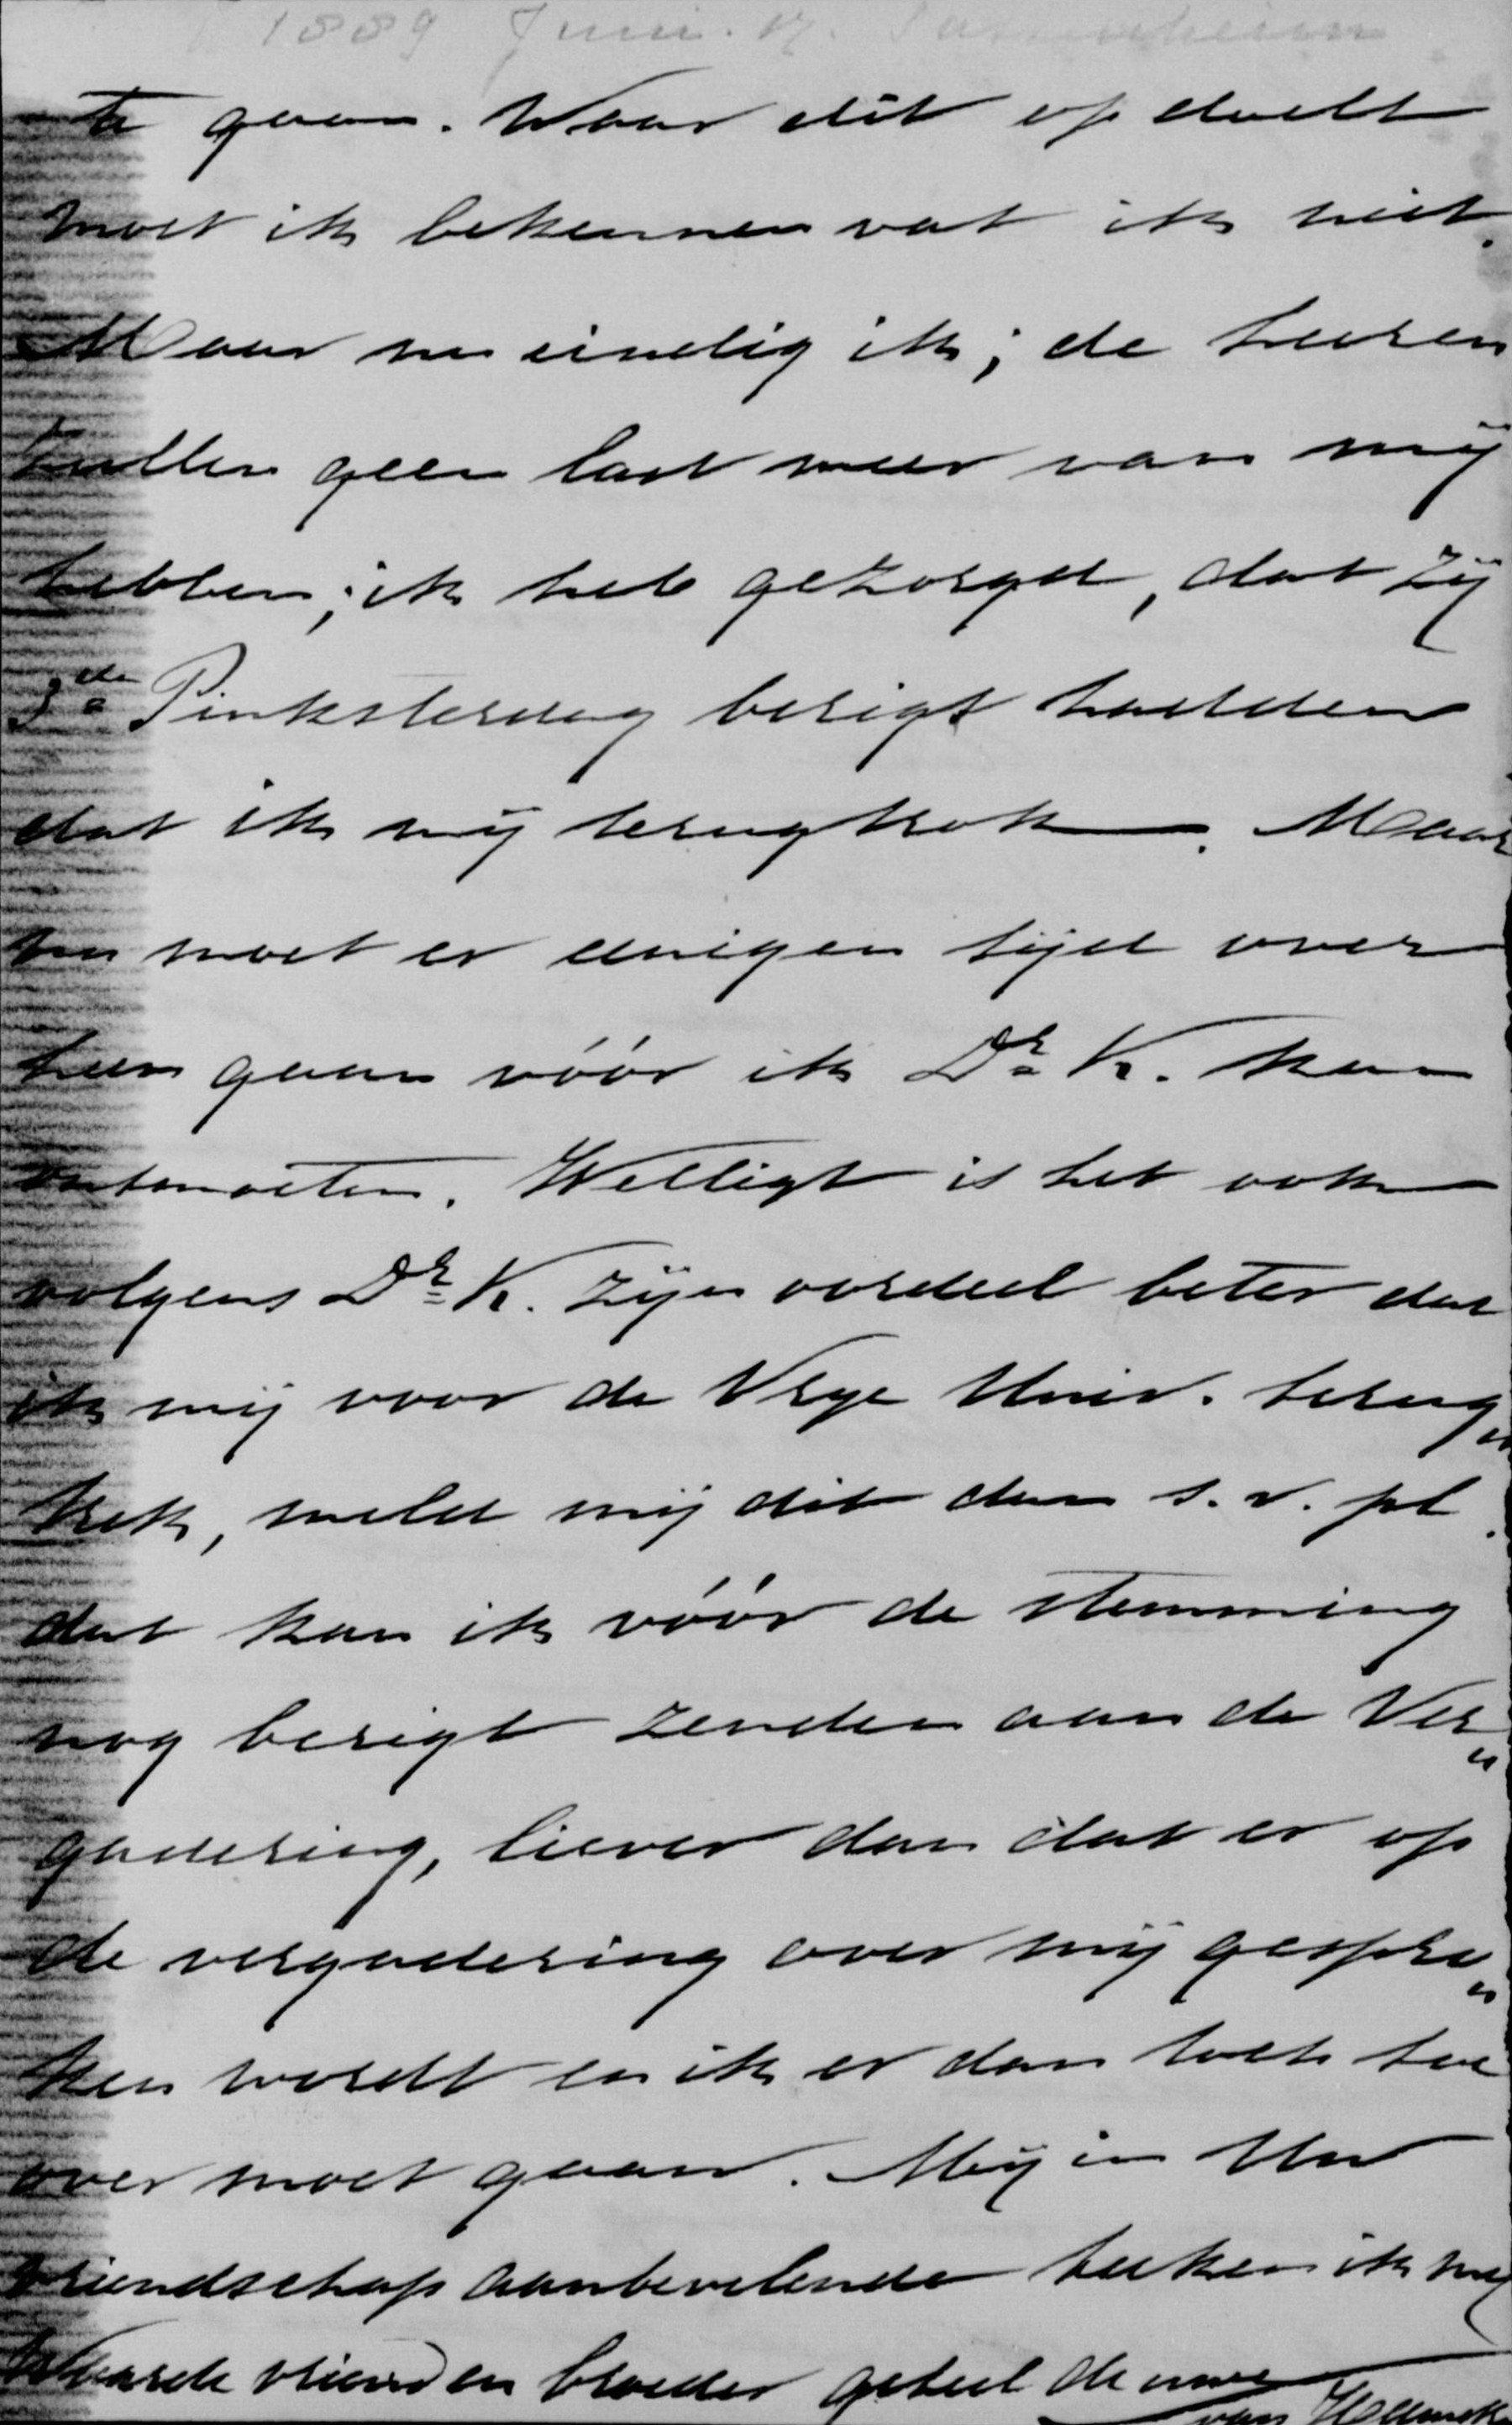 1889 Juni. 17. Sassenheim
te gaan. Waar dit op doelt
moet ik bekennen vat ik niet.
Maar nu eindig ik; de heeren
zullen geen last meer van mij
hebben; ik heb gezorgd, dat zij
3de Pinksterdag berigt hadden
dat ik mij terugtrok. Maar
nu moet er eenigen tijd over
heen gaan vóór ik Dr K. kan
ontmoeten. Welligt is het ook
volgens Dr K. zijn oordeel beter dat
ik mij voor de Vrye Univ. terug„
trek, meld mij dit dan s.v.pl.
dat kan ik vóór de stemming
nog berigt zenden aan de Ver„
gadering, liever dan dat er op
de vergadering over mij gespro„
ken wordt en ik er dan toch toe
over moet gaan. Mij in Uw
vriendschap aanbevelende teeken ik mij
Waarde vriend en broeder geheel de uwe
van